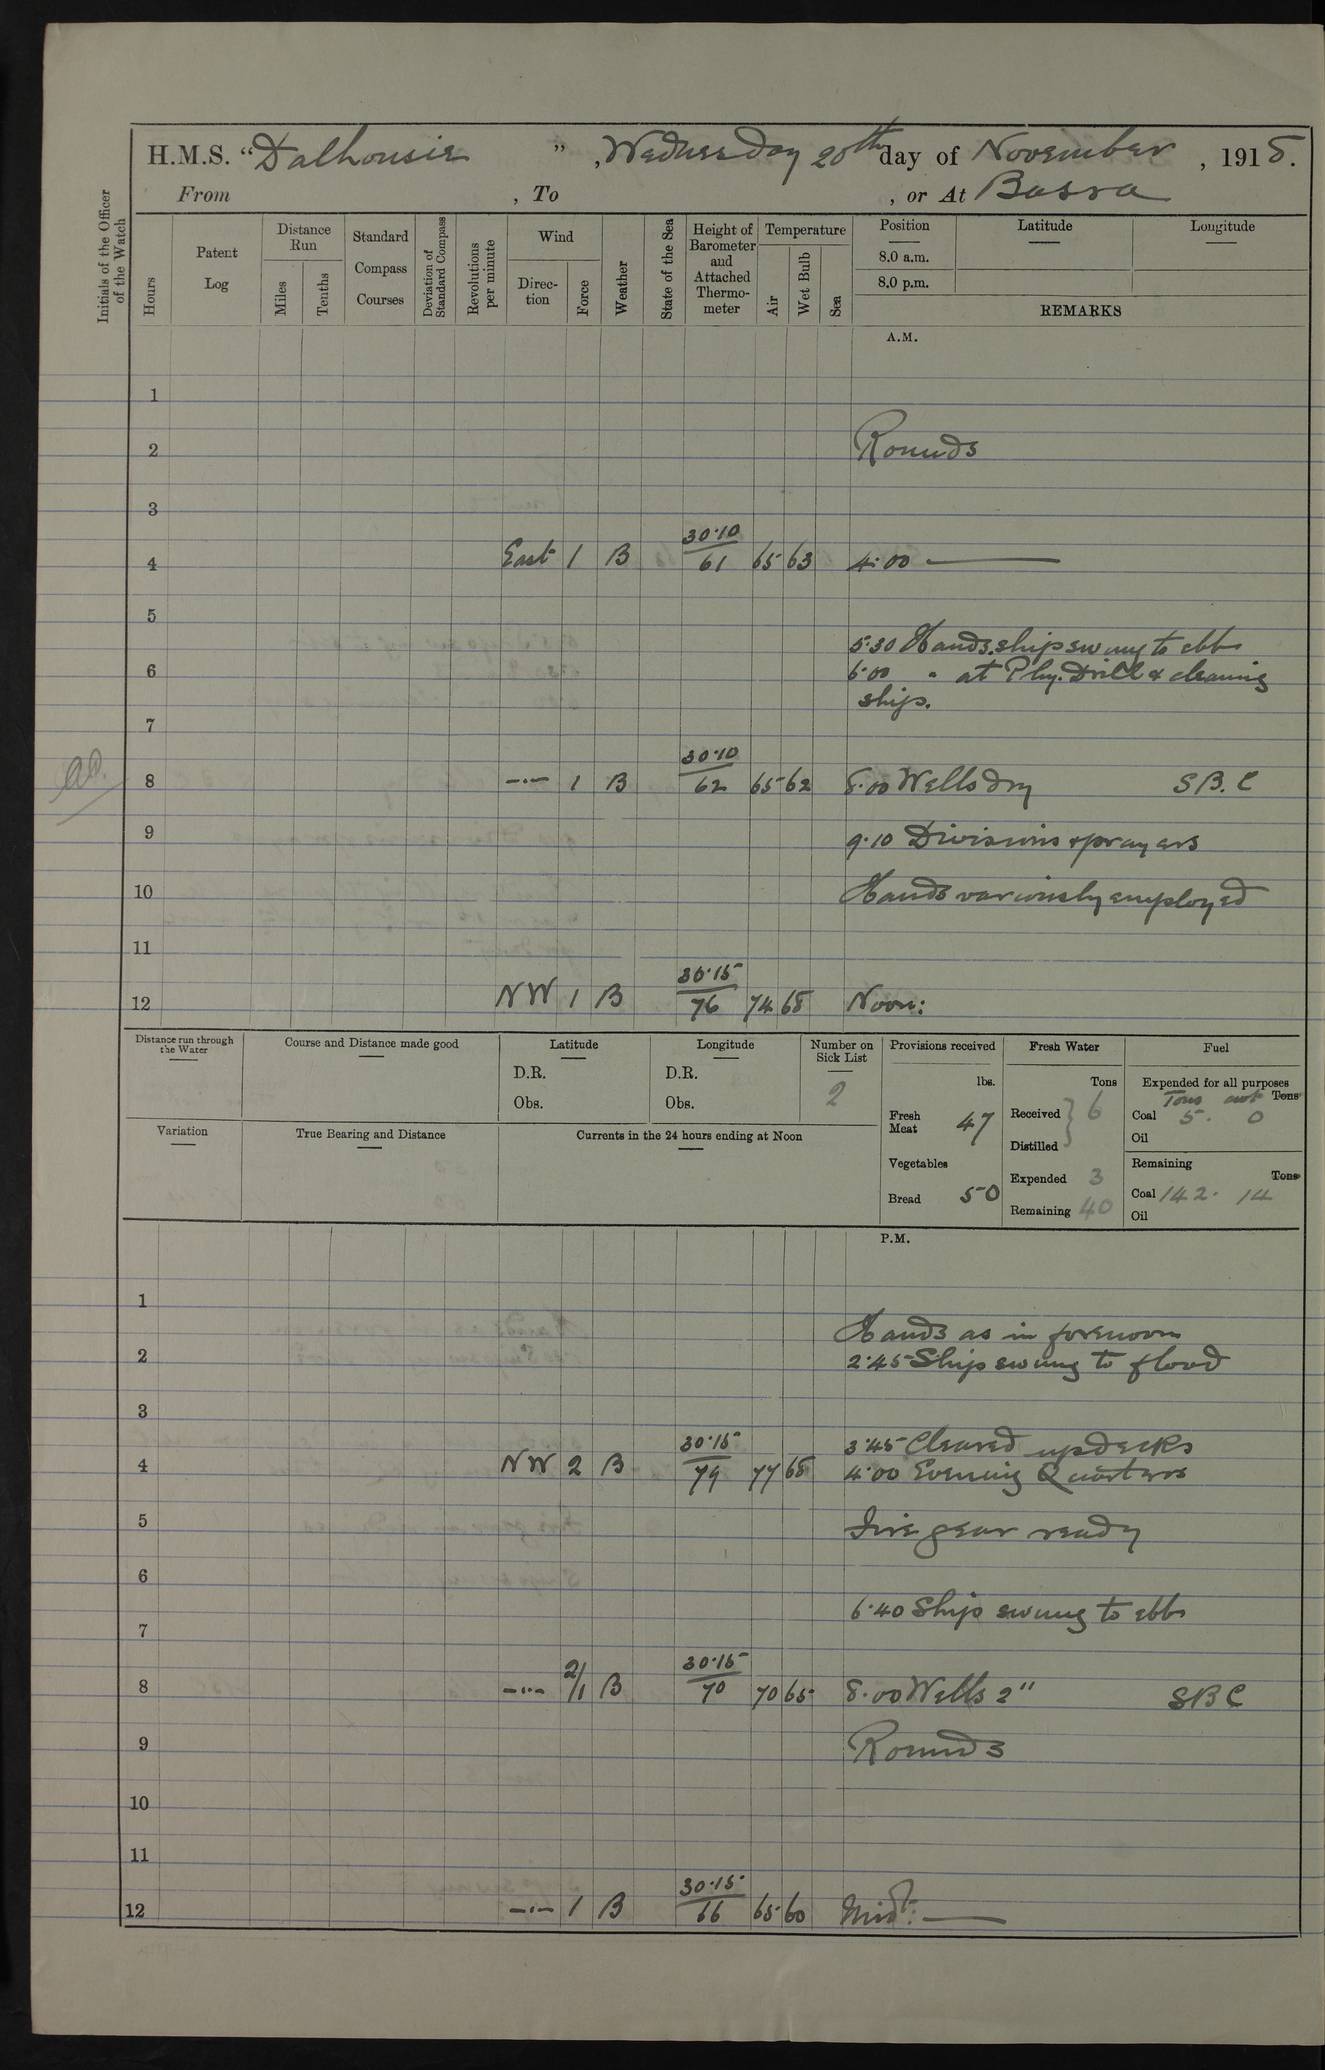 H.M.S. "Dalhousie", Wednesday 20th day of November, 1918.
From , To , or At Basra
Initials of the Officer of the Watch
Hours
Patent Log
Distance Run
Miles
Tenths
Standard Compass Courses
Deviation of Standard Compass
Revolutions per minute
Wind
Direction
Force
Weather
State of the Sea
Height of Barometer and Attached Thermometer
Temperature
Air
Wet Bulb
Sea
Position
8.0 a.m.
8.0 p.m.
Latitude
Longitude
REMARKS
A.M.
1
2 Rounds
3
4 East 1 B 30.10/61 65 63 4.00 —
5
5.30 Hands. ship swung to ebb
6 6.00 " at Phy. Drill & cleaning
ship.
7
8 -"- 1 B 30.10/62 65 62 8.00 Wells dry SB.C
9 9.10 Divisions & prayers
10 Hands variously employed
11
12 NW 1 B 30.15/76 74 68 Noon:
Distance run through the Water
Course and Distance made good
Latitude
D.R.
Obs.
Longitude
D.R.
Obs.
Number on Sick List
2
Provisions received
lbs.
Fresh Meat 47
Vegetables
Bread 50
Fresh Water
Tons
Received } 6
Distilled
Expended 3
Remaining 40
Fuel
Expended for all purposes
Tons cwt Tons
Coal 5. 0
Oil
Remaining
Tons
Coal 142. 14
Oil
Variation
True Bearing and Distance
Currents in the 24 hours ending at Noon
P.M.
1
Hands as in forenoon
2 2.45 Ship swung to flood
3
3.45 Cleared up decks
4 NW 2 B 30.15/79 77 68 4.00 Evening Quarters
5 Fire gear ready
6
6.40 Ship swung to ebb
7
8 -"- 2/1 B 30.15/70 70 65 8.00 Wells 2" SBC
9 Rounds
10
11
12 -"- 1 B 30.15/66 65 60 Midt: —